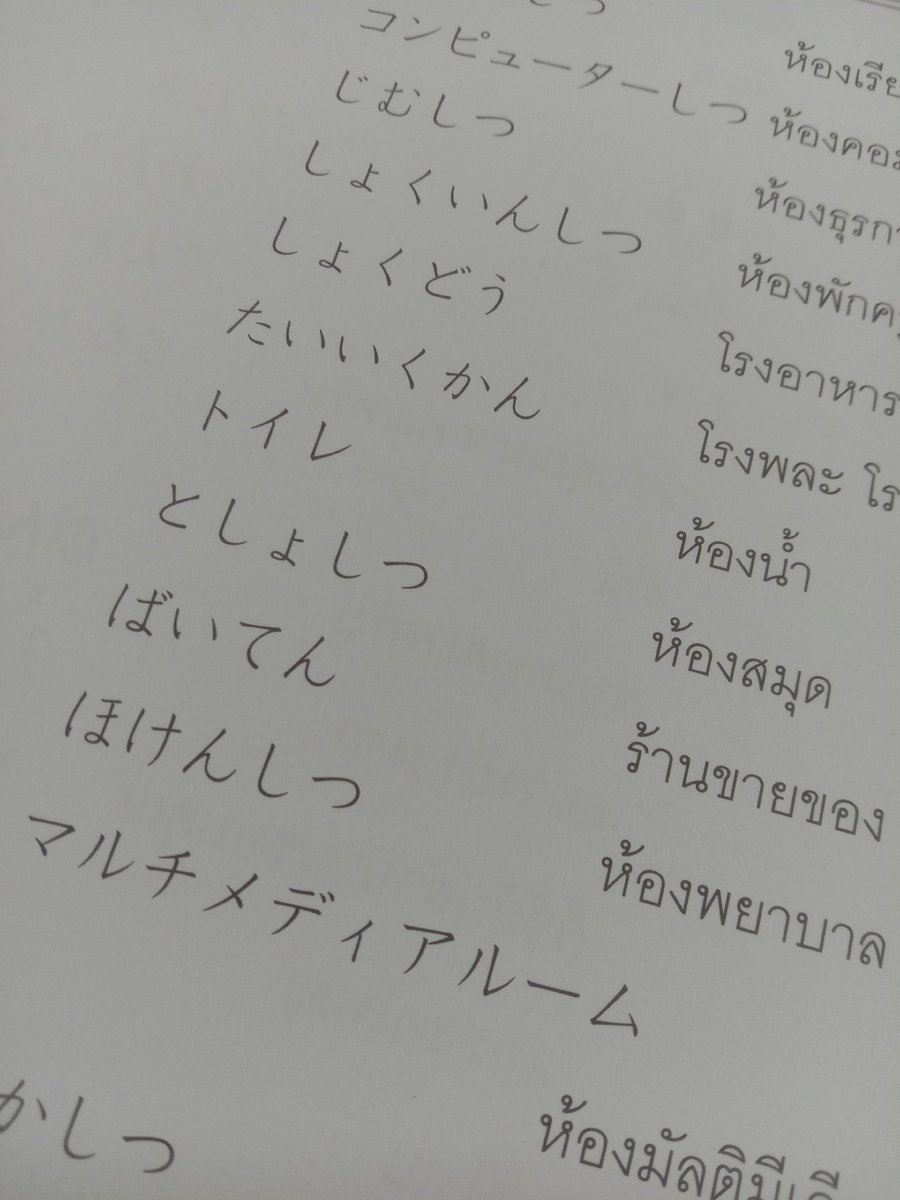 ห้องเรีย
コンピューターしつ ห้องคอ
じむしつ ห้องธุรกา
しょくいんしつ ห้องพักค
しょくどう โรงอาหาร
たいいくかん โรงพละ โร
トイレ ห้องน้ำ
としょしつ ห้องสมุด
ばいてん ร้านขายของ
ほけんしつ ห้องพยาบาล
マルチメディアルーム
ห้องมัลติมีเดี
かしつ